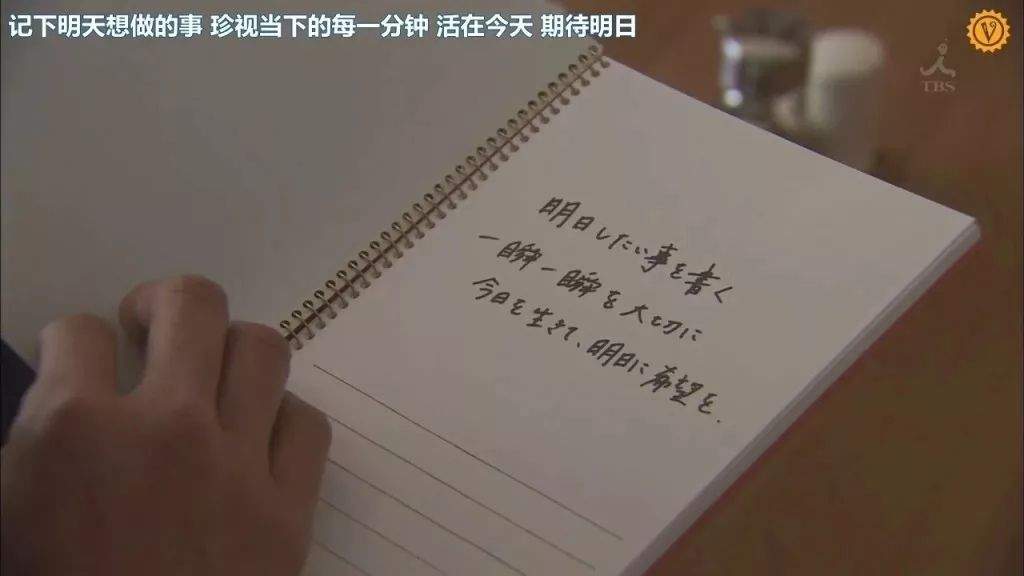 记下明天想做的事 珍视当下的每一分钟 活在今天 期待明日
TBS
明日したい事を書く
一瞬一瞬を大切に
今日を生きて、明日に希望を.